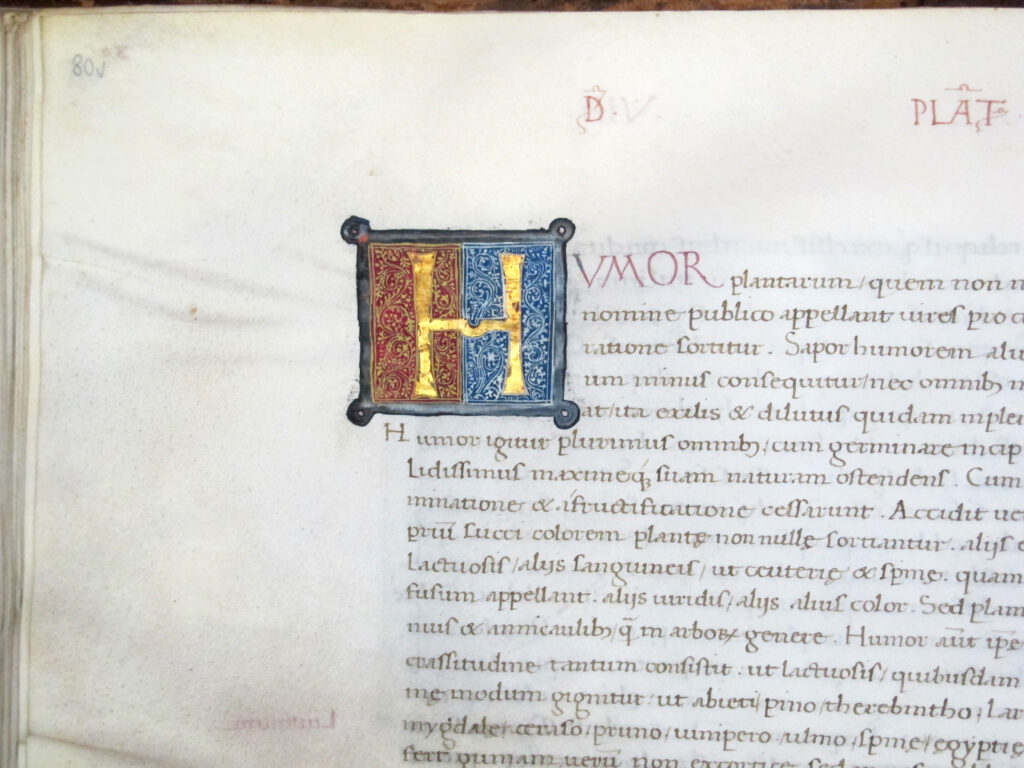 80v
D̄. PLĀT
HVMOR plantarum/quem non n
nomine publico appellant uires pro
ratione sortitur. Sapor humorem
um minus consequitur/nec omnibꝫ
at/ita exilis & dilutus quidam
Humor igitur plurimus omnibꝫ/cum germinare incip
lidissimus maximeqꝫ suam naturam ostendens. Cum
minatione & a fructificatione cessarunt. Accidit ue
priū succi colorem plantę non nullę sortiantur. alijs
Lactuosis/alijs sanguineis/ut ceuterię & spinę. quam
fusum appellant. alijs uiridis/alijs alius color. Sed plan
nuis & annicaulibꝫ/q̄ in arboꝝ genere. Humor aūt ip̄e
crassitudine tantum consistit. ut lactuosis/quibusdam
mę modum gignitur. ut abieti/pino/therebintho/Lar
mygdale/ceraso/pruno/iunipero/ulmo/spinę/egyptię
fert quinam uerū non excortice sed